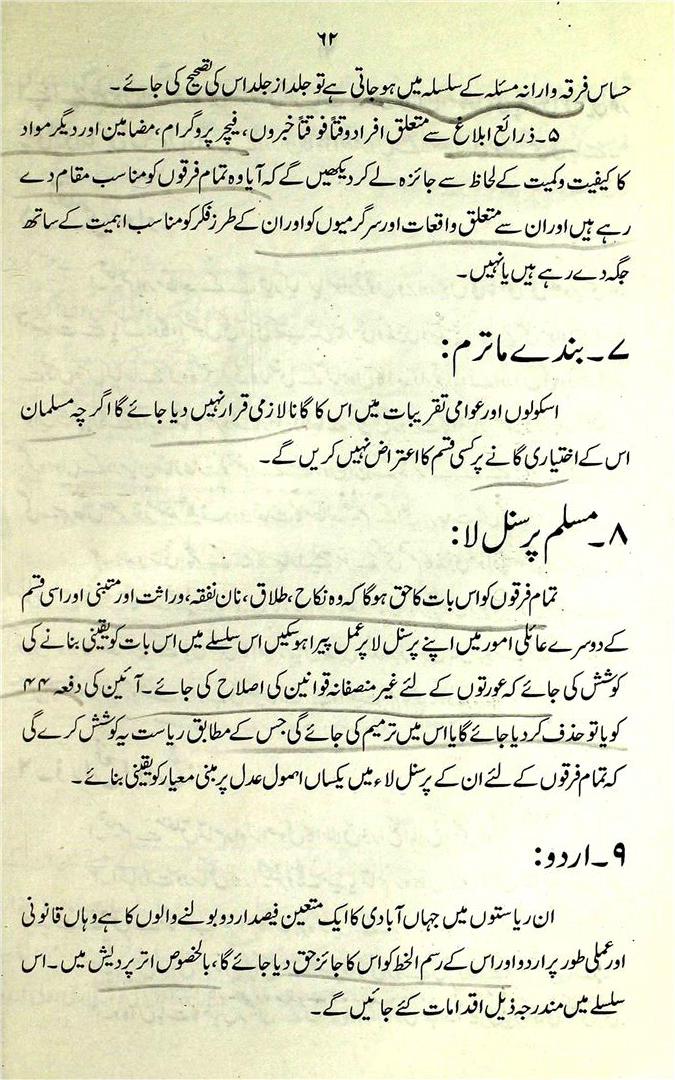 ۶۲
حساس فرقہ وارانہ مسئلہ کے سلسلہ میں ہو جاتی ہے تو جلد از جلد اس کی تصحیح کی جائے۔
۵۔ ذرائع ابلاغ سے متعلق افراد وقتاً فوقتاً خبروں، فیچر پروگرام، مضامین اور دیگر مواد
کا کیفیت وکمیت کے لحاظ سے جائزہ لے کر دیکھیں گے کہ آیا وہ تمام فرقوں کو مناسب مقام دے
رہے ہیں اور ان سے متعلق واقعات اور سرگرمیوں کو اور ان کے طرز فکر کو مناسب اہمیت کے ساتھ
جگہ دے رہے ہیں یا نہیں۔
۷۔ بندے ماترم:
اسکولوں اور عوامی تقریبات میں اس کا گانا لازمی قرار نہیں دیا جائے گا اگرچہ مسلمان
اس کے اختیاری گانے پر کسی قسم کا اعتراض نہیں کریں گے۔
۸۔ مسلم پرسنل لا:
تمام فرقوں کو اس بات کا حق ہوگا کہ وہ نکاح، طلاق، نان نفقہ، وراثت اور متبنی اور اسی قسم
کے دوسرے عائلی امور میں اپنے پرسنل لا پر عمل پیرا ہو سکیں اس سلسلے میں اس بات کو یقینی بنانے کی
کوشش کی جائے کہ عورتوں کے لئے غیر منصفانہ قوانین کی اصلاح کی جائے۔ آئین کی دفعہ ۴۴
کو یا تو حذف کر دیا جائے گا یا اس میں ترمیم کی جائے گی جس کے مطابق ریاست یہ کوشش کرے گی
کہ تمام فرقوں کے لئے ان کے پرسنل لاء میں یکساں اہمول عدل پر مبنی معیار کو یقینی بنائے۔
۹۔ اردو:
ان ریاستوں میں جہاں آبادی کا ایک متعین فیصد اردو بولنے والوں کا ہے وہاں قانونی
اور عملی طور پر اردو اور اس کے رسم الخط کو اس کا جائز حق دیا جائے گا، بالخصوص اتر پردیش میں۔ اس
سلسلے میں مندرجہ ذیل اقدامات کئے جائیں گے۔